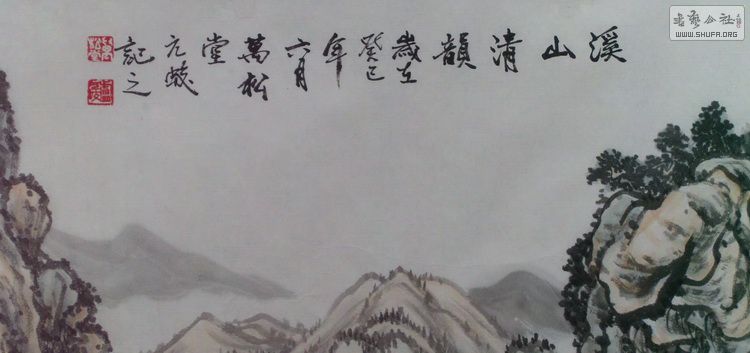 溪山清韻
歲在
癸巳
年
六月
萬松
堂
元歧
記之
書藝公社
WWW.SHUFA.ORG